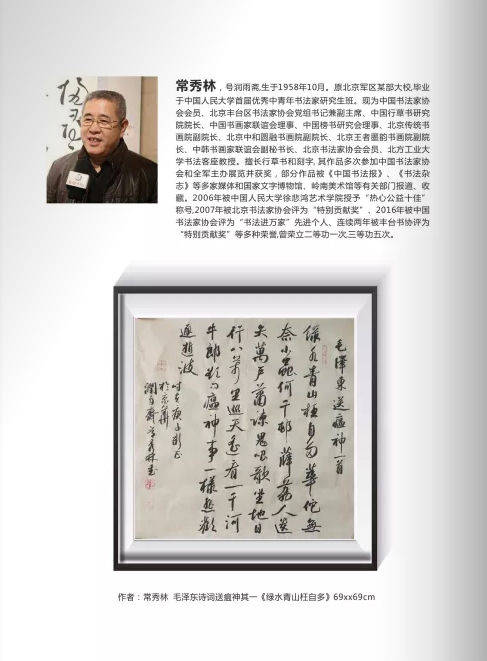 常秀林，号润雨斋,生于1958年10月。原北京军区某部大校,毕业
于中国人民大学首届优秀中青年书法家研究生班。现为中国书法家协
会会员、北京丰台区书法家协会党组书记兼副主席、中国行草书研究
院院长、中国书画家联谊会理事、中国榜书研究会理事、北京传统书
画院副院长、北京中和圆融书画院副院长、北京王者墨韵书画院副院
长、中韩书画家联谊会副秘书长、北京书法家协会会员、北方工业大
学书法客座教授。擅长行草书和刻字,其作品多次参加中国书法家协
会和全军主办展览并获奖，部分作品被《中国书法报》、《书法杂
志》等多家媒体和国家文字博物馆、岭南美术馆等有关部门报道、收
藏。2006年被中国人民大学徐悲鸿艺术学院授予“热心公益十佳”
称号,2007年被北京书法家协会评为“特别贡献奖”、2016年被中国
书法家协会评为“书法进万家”先进个人、连续两年被丰台书协评为
“特别贡献奖”等多种荣誉,曾荣立二等功一次,三等功五次。
毛澤東送瘟神一首
绿水青山枉自多華佗無
奈小蟲何千邨薜荔人遗
矢萬户萧疏鬼唱歌坐地日
行八萬里巡天遥看一千河
牛郎欲问瘟神事一樣悲歡
逐逝波
时在庚子新正
於京華
润雨齋常秀林書
作者：常秀林 毛泽东诗词送瘟神其一《绿水青山枉自多》69xx69cm